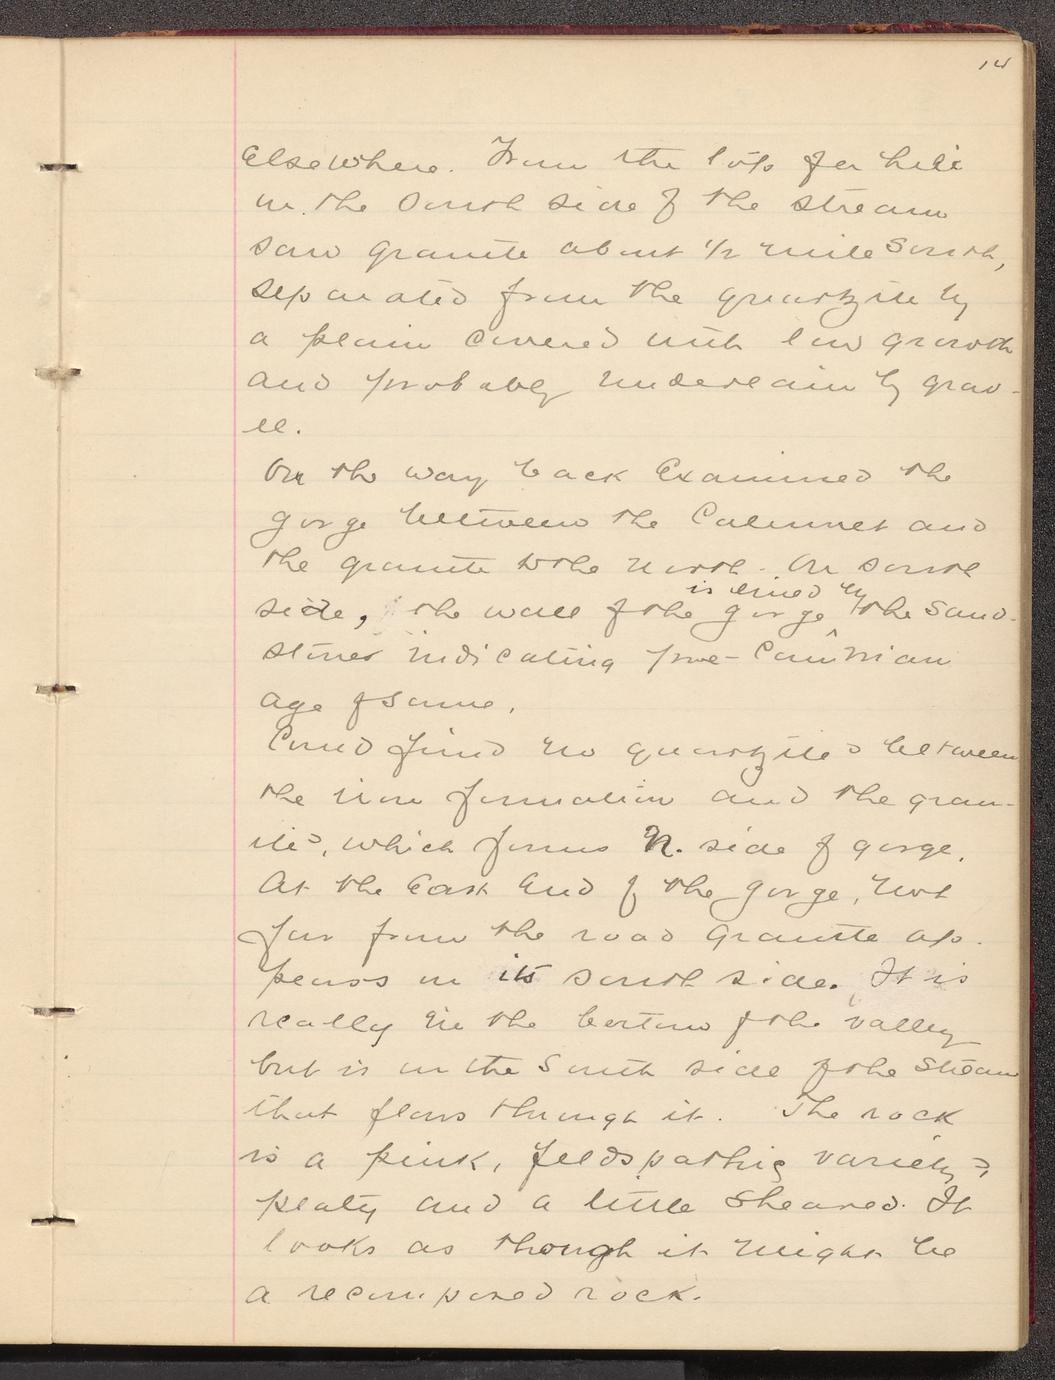 14
elsewhere. From the top of a hill
on the South side of the stream
saw granite about 1/2 mile South,
separated from the quartzite by
a plain covered with low growth
and probably underlain by grav-
el.
On the way back examined the
gorge between the Calumet and
the granite to the north. On south
is lined by
side, the wall of the gorge ^ the Sand-
stones indicating pre-Cambrian
age of same.
Could find no quartzites between
the iron formation and the gran-
ite, which forms N. side of gorge.
At the East End of the gorge, not
far from the road granite ap-
pears on its south side. It is
really in the bottom of the valley
but is on the South side of the stream
that flows through it. The rock
is a pink, feldspathic variety,
platy and a little sheared. It
looks as though it might be
a recomposed rock.